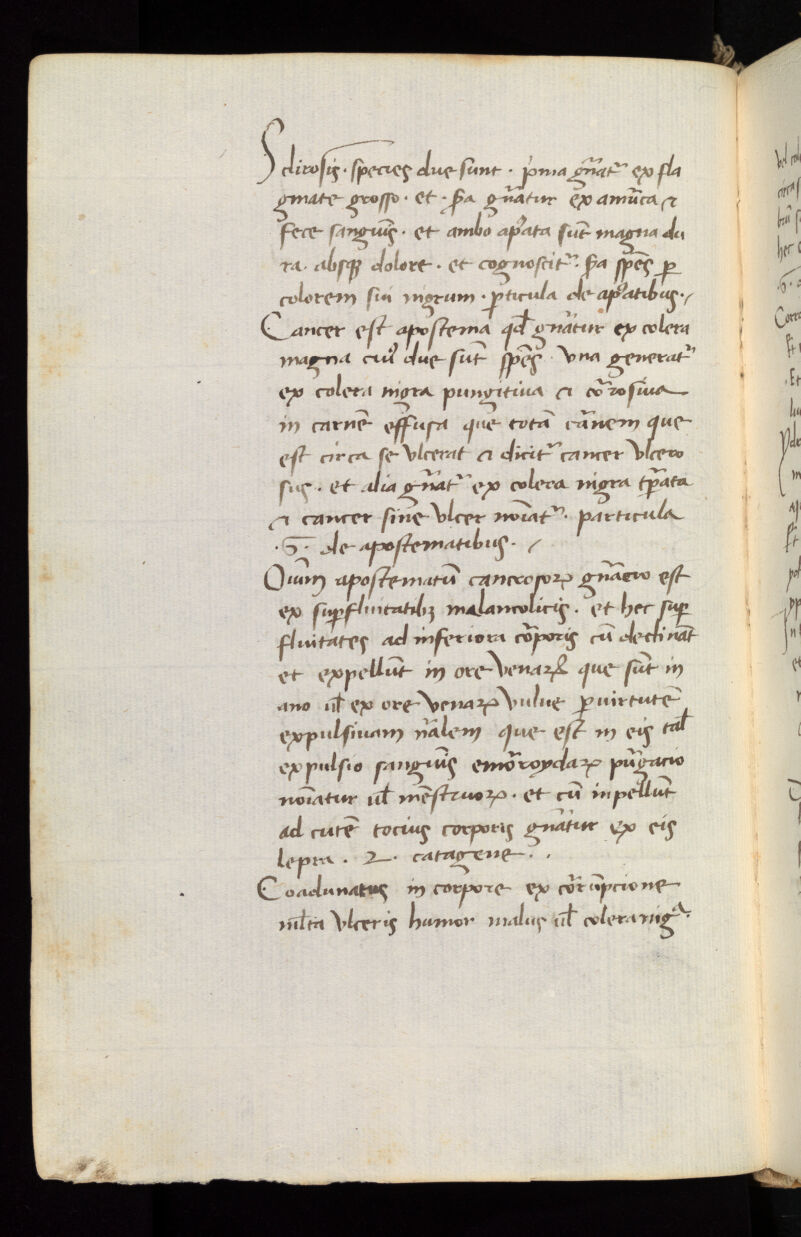 Sclirosis · species due sunt · p̾ma gñat᷑ ex fla
gmate grosso · et · s̃a gñatur ex amurca ⁊
fece sanguĩs · et ambo ap̾ata sũt magna du
ra · absqꝫ dolore · et cognoscit᷑ · s̃a sp̃es ꝑ
colorem sui nigrum · ꝑticula de ap̾atibus ·
Cancer est apostema qd̃ gñatur ex colera
magna cuiꝰ due sũt sp̃es · Una generat᷑
ex colera nigra pungitiua ⁊ cõrosiua
in carnẽ effusa que totã cãrnem que
est circa se ulcerat ⁊ dicit᷑ cancer ulcero
sus · et alia gñat᷑ ex colera nigra tp̃ata
⁊ cancer sine ulcer noĩat᷑ · particula
· 6 · de apostematibus ·
Oĩum apostematũ cancrosoꝝ gñacio est
ex suꝑfluitatibꝫ malancolicis · et hec suꝑ
fluitates ad inferiora cõrporis cũ declinãt
et expellũt in ore venaꝝ que sũt in
ano ul̃ ex ore venaꝝ vulue ꝑ uirtutẽ
expulsiuam nãlem que est in eis tal̃
expulsio sanguĩs emõroydaꝝ pũrgacio
noĩatur ul̃ mẽstruoꝝ · et cũ inpellũt
ad cutẽ tocius corporis gñatur ex eis
lepra · 2 · catagene ·
Coadunatus in corpore ex cõrrũpcione
ml̃ta ulceris humor malus ul̃ colera nigᵃ ·